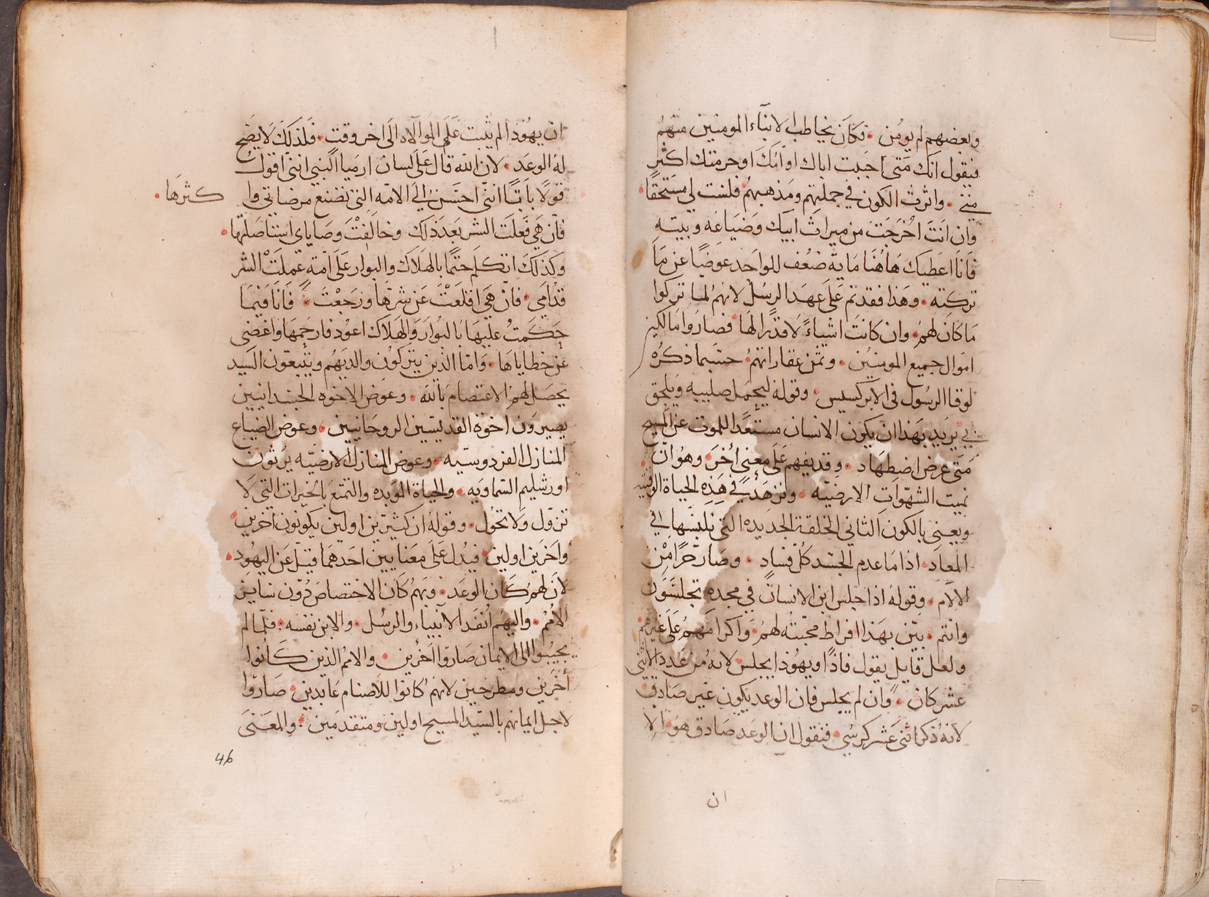 وبعضهم لم يومن. فكان يخاطب الابناء المومنين منهم
فيقول انك متى احببت اباك او امك او حرمتك اكثر
مني. واثرت الكون في جملتهم ومذهبهم فلست لي مستحقا.
وان انت اخرجت من ميراث ابيك وضياعه وبيته
فانا اعطيك هاهنا مايه ضعف للواحد عوضا عن ما
تركته. وهذا فقد تم على عهد الرسل لانهم لما تركوا
ما كان لهم. وان كانت اشياءً لا قدر لها. فصاروا مالكين
اموال جميع المومنين. وثمن عقاراتهم. حسبما ذكره
لوقا الرسول في الابركسيس. وقوله ليحمل صليبه ويلحق
بي يريد بهذا ان يكون الانسان مستعدا للموت عن المسيح
متى عرض اضطهاد. وقد يفهم على معنى اخر. وهو ان
نميت الشهوات الارضيه. ونزهد في هذه الحياة
ويعني بالكون الثاني الخلقة الجديده التي نلبسها في
المعاد. اذا ما عدم الجسد كل فساد. وصار حرا من
الالام. وقوله اذا جلس ابن الانسان في مجده تجلسون
وانتم. بين بهذا افراط محبته لهم. واكرامهم على غيرهم
ولعل قايل يقول فاذًا ويهودا يجلس لانه من عدد الاثني
عشر كان. وان لم يجلس فان الوعد يكون غير صادق.
لانه ذكر اثني عشر كرسي. فنقول ان الوعد صادق هو. الا
ان
ان يهودا لم يثبت على الموالاه الى اخر وقت. فلذلك لا يصح
له الوعد. لان الله قال على لسان ارميا النبي انني اقول
قولًا باتًا انني احسن الى الامه التي تصنع مرضاتي وا كثرها.
فان هي فعلت الشر بعد ذلك وخالفت وصاياي استاصلتها.
وكذلك اتكلم حتمًا بالهلاك والبوار على امة عملت الشر
قدامي. فان هي اقلعت عن شرها ورجعت. فانا فيما
حكمت عليها بالبوار والهلاك اعود فارحمها واغضي
عن خطاياها. واما الذين يتركون والديهم ويتبعون السيد
يحصل لهم الاعتصام بالله. وعوض الاخوه الجسدانيين
يصيرون اخوة القديسين الروحانيين. وعوض الضياع
المنازل الفردوسيه. وعوض المنازل الارضيه يرثون
اورشليم السماويه. والحياة الموبده والتمتع بالخيرات التي لا
تزول ولا تحول. وقوله ان كثيرين اولين يكونون اخرين.
واخرين اولين. فيدل على معنايين احدهما قيل عن اليهود.
لان لهم كان الوعد. وبهم كان الاختصاص دون ساير
الامم. واليهم انفد الانبياء والرسل. والابن نفسه. فلما لم
يجيبوا الى الايمان صاروا اخرين. والامم الذين كانوا
اخرين ومطرحين لانهم كانوا للاصنام عابدين. صاروا
لاجل ايمانهم بالسيد المسيح اولين ومتقدمين. والمعنى
46